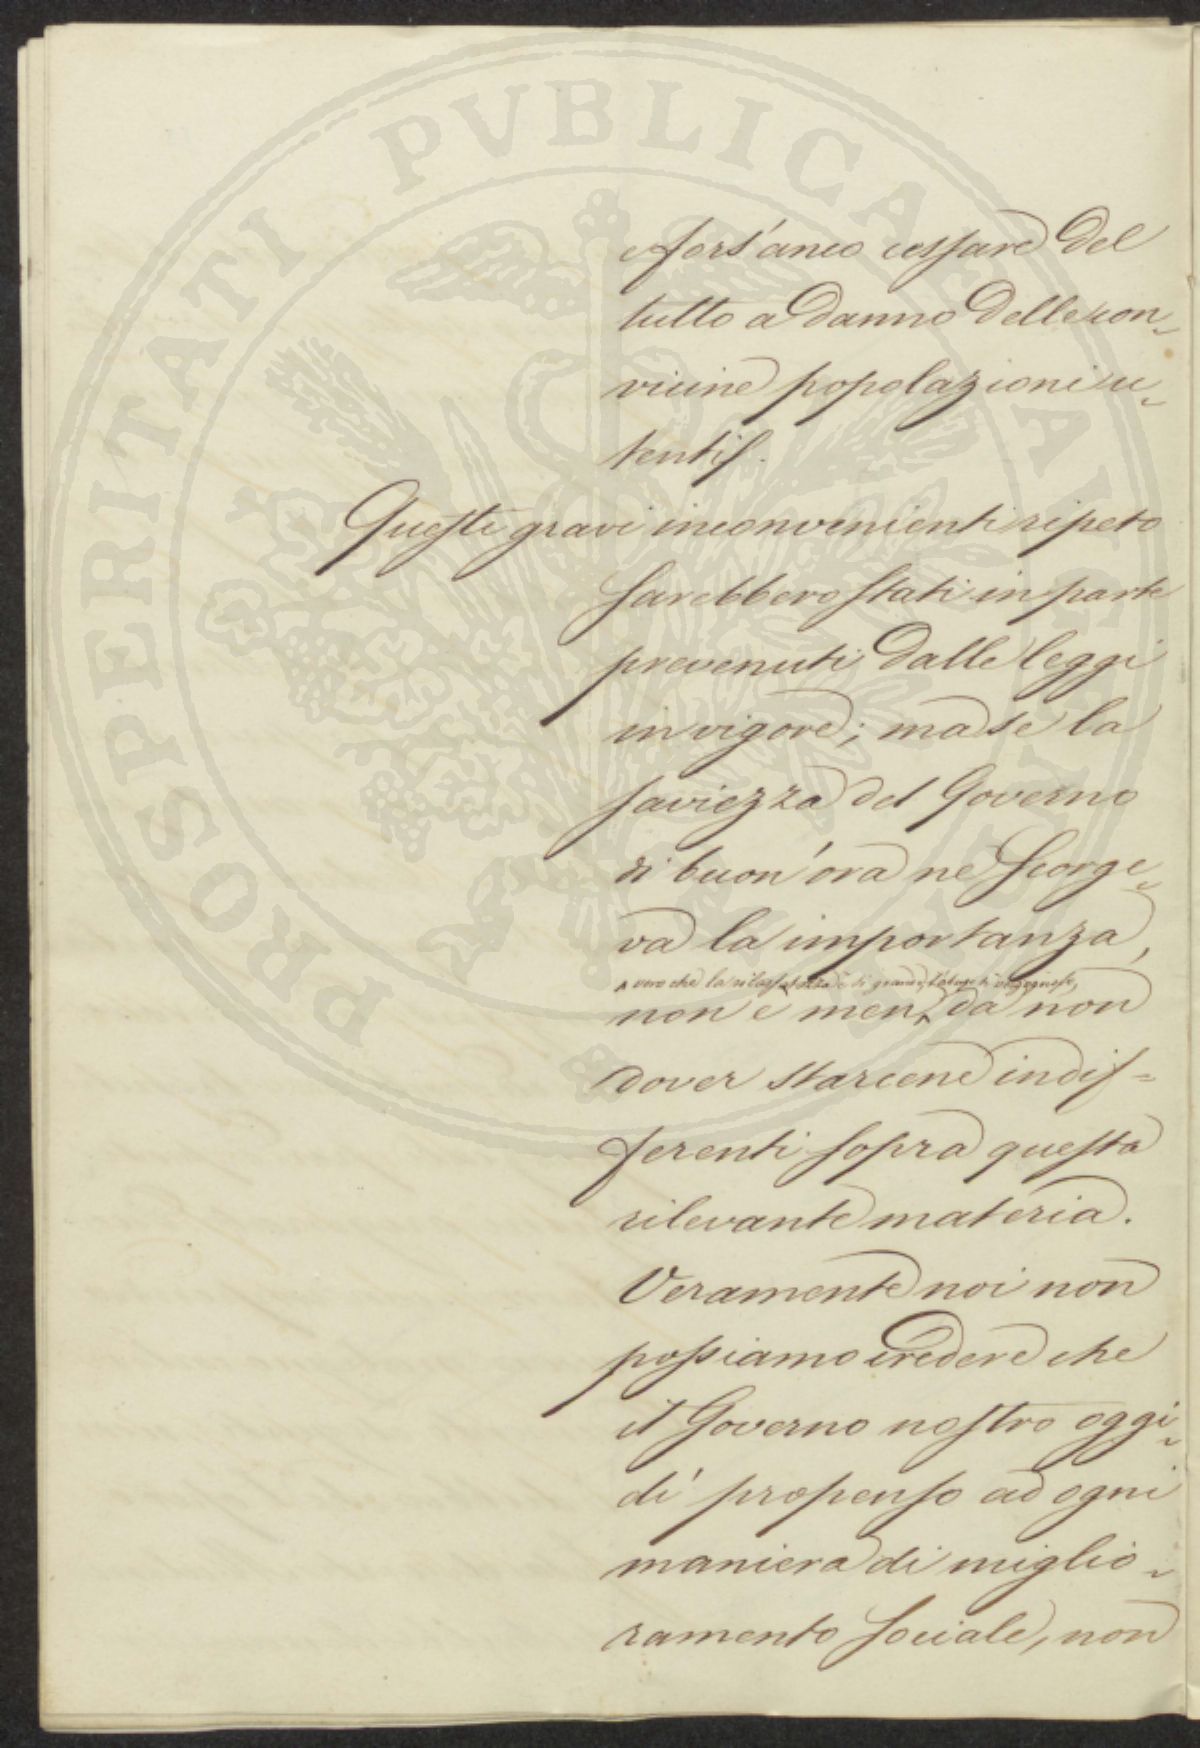 PROSPERITATI PVBLICAE AVGENDAE
e fors'anco cessare del
tutto a danno delle con¬
vicine popolazioni u¬
tenti.
Queste gravi inconvenienti ripeto
sarebbero stati in parte
prevenuti dalle leggi
in vigore; ma se la
saviezza del Governo
di buon'ora ne scorge¬
va la importanza,
^ vero che la rilassatezza è di grande
non è men^ da non
dover starcene indif=
ferenti sopra questa
rilevante materia.
Veramente noi non
possiamo credere che
il Governo nostro oggi¬
dì propenso ad ogni
maniera di miglio¬
ramento sociale, non